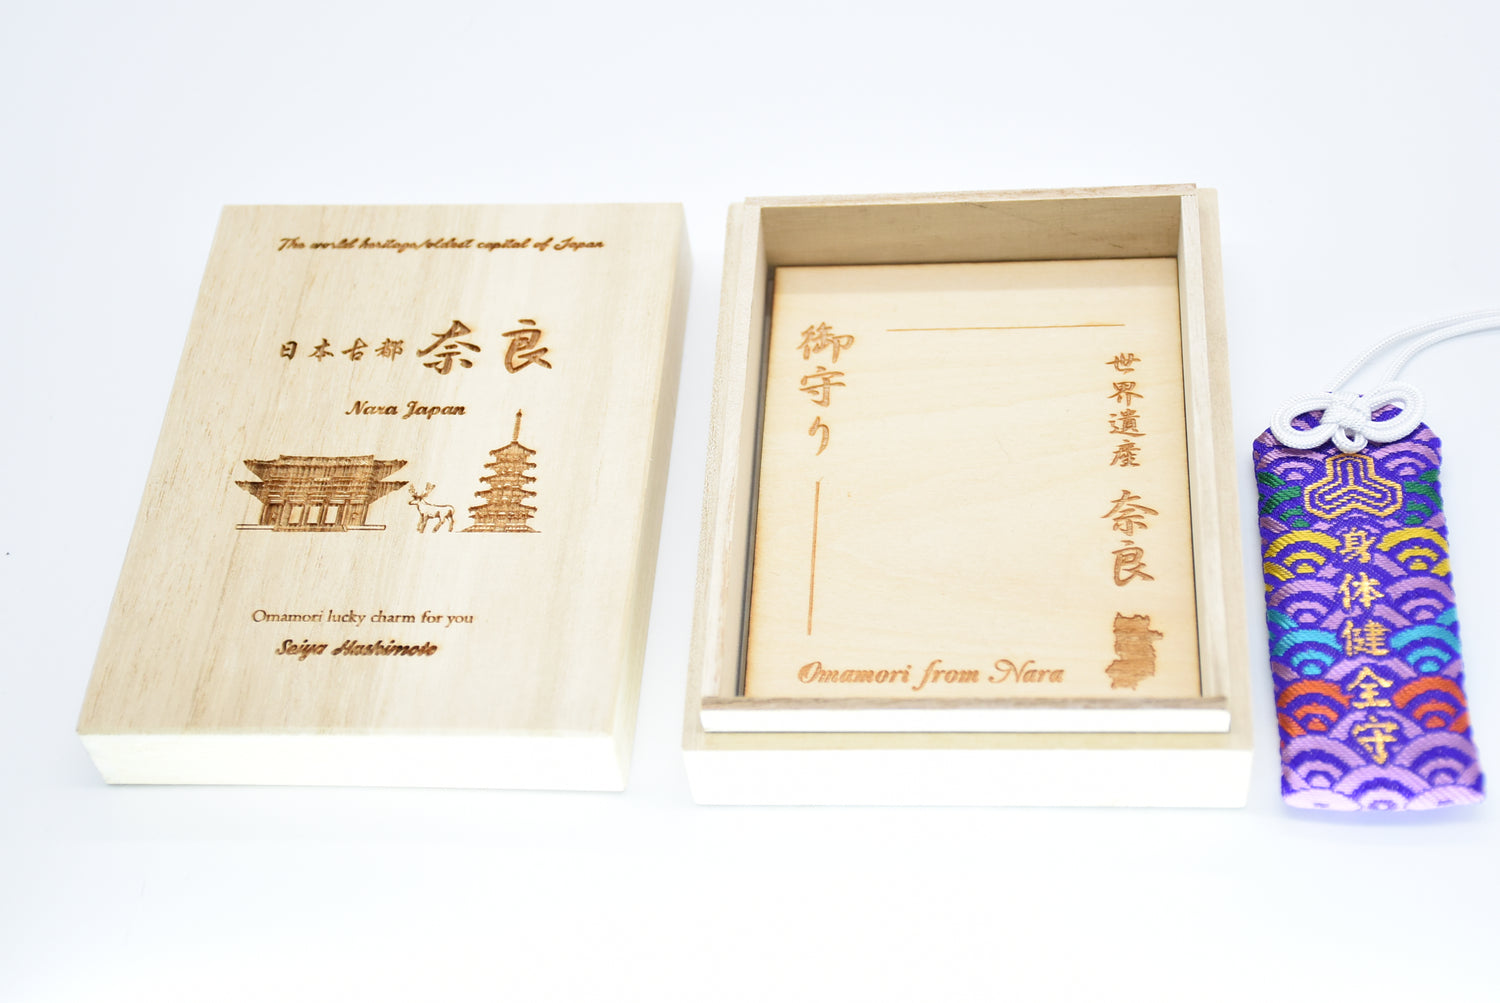 The world heritage/oldest capital of Japan
日本古都 奈良
Nara Japan
Omamori lucky charm for you
Seiya Hashimoto
御守り
世界遺産 奈良
Omamori from Nara
身体健全守